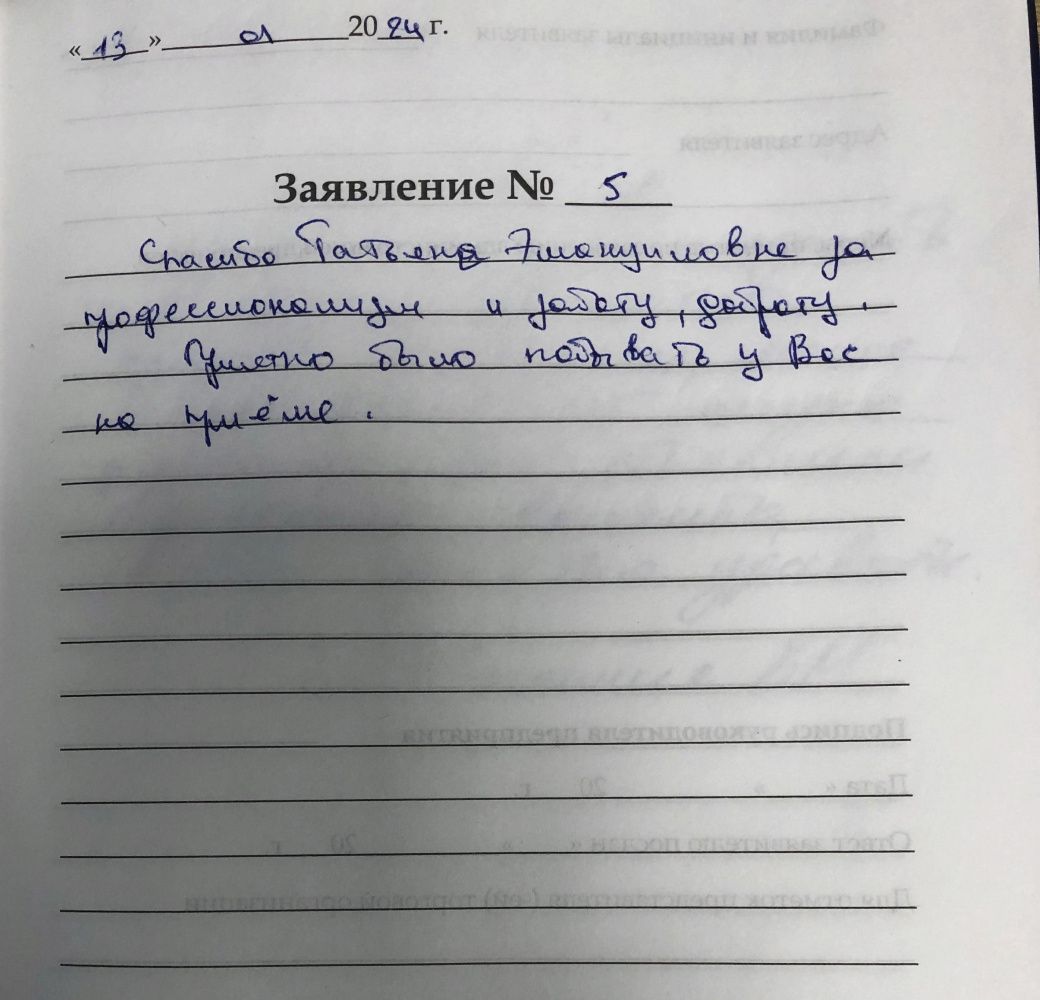 «13» 01 2024 г.
Заявление № 5
Спасибо Татьяне Эмануиловне за
професcионализм и заботу, доброту.
Приятно было побывать у Вас
на приёме.